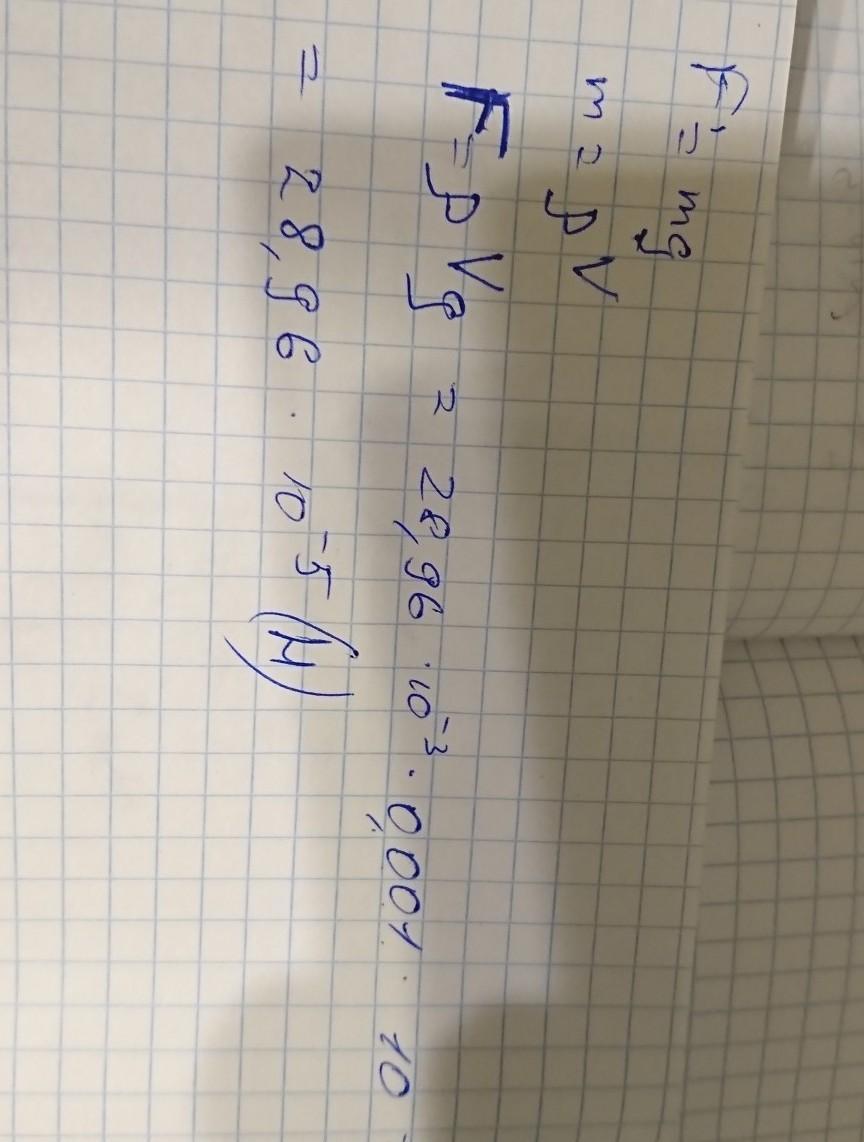 F = mg
m = ρV
F = ρVg = 28,96 · 10⁻³ · 0,001 · 10
= 28,96 · 10⁻⁵ (Н)